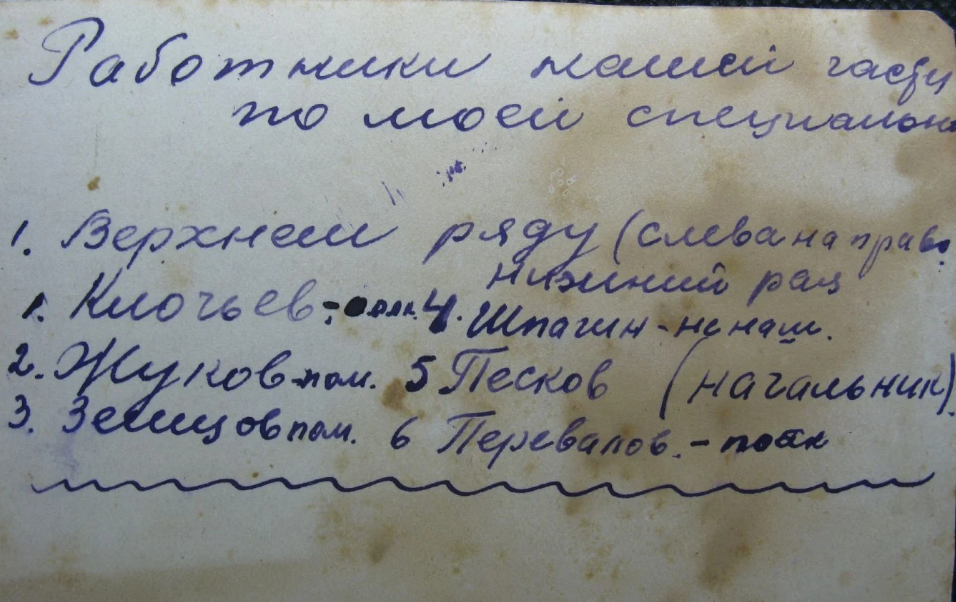 Работники нашей части
по моей специальн
1. Верхнем ряду (слева направо
нижний ряд
1. Клочьев - 4. Шпагин - не наш.
2. Жуков - пом. 5 Песков (начальник).
3. Земцов пом. 6 Перевалов. -